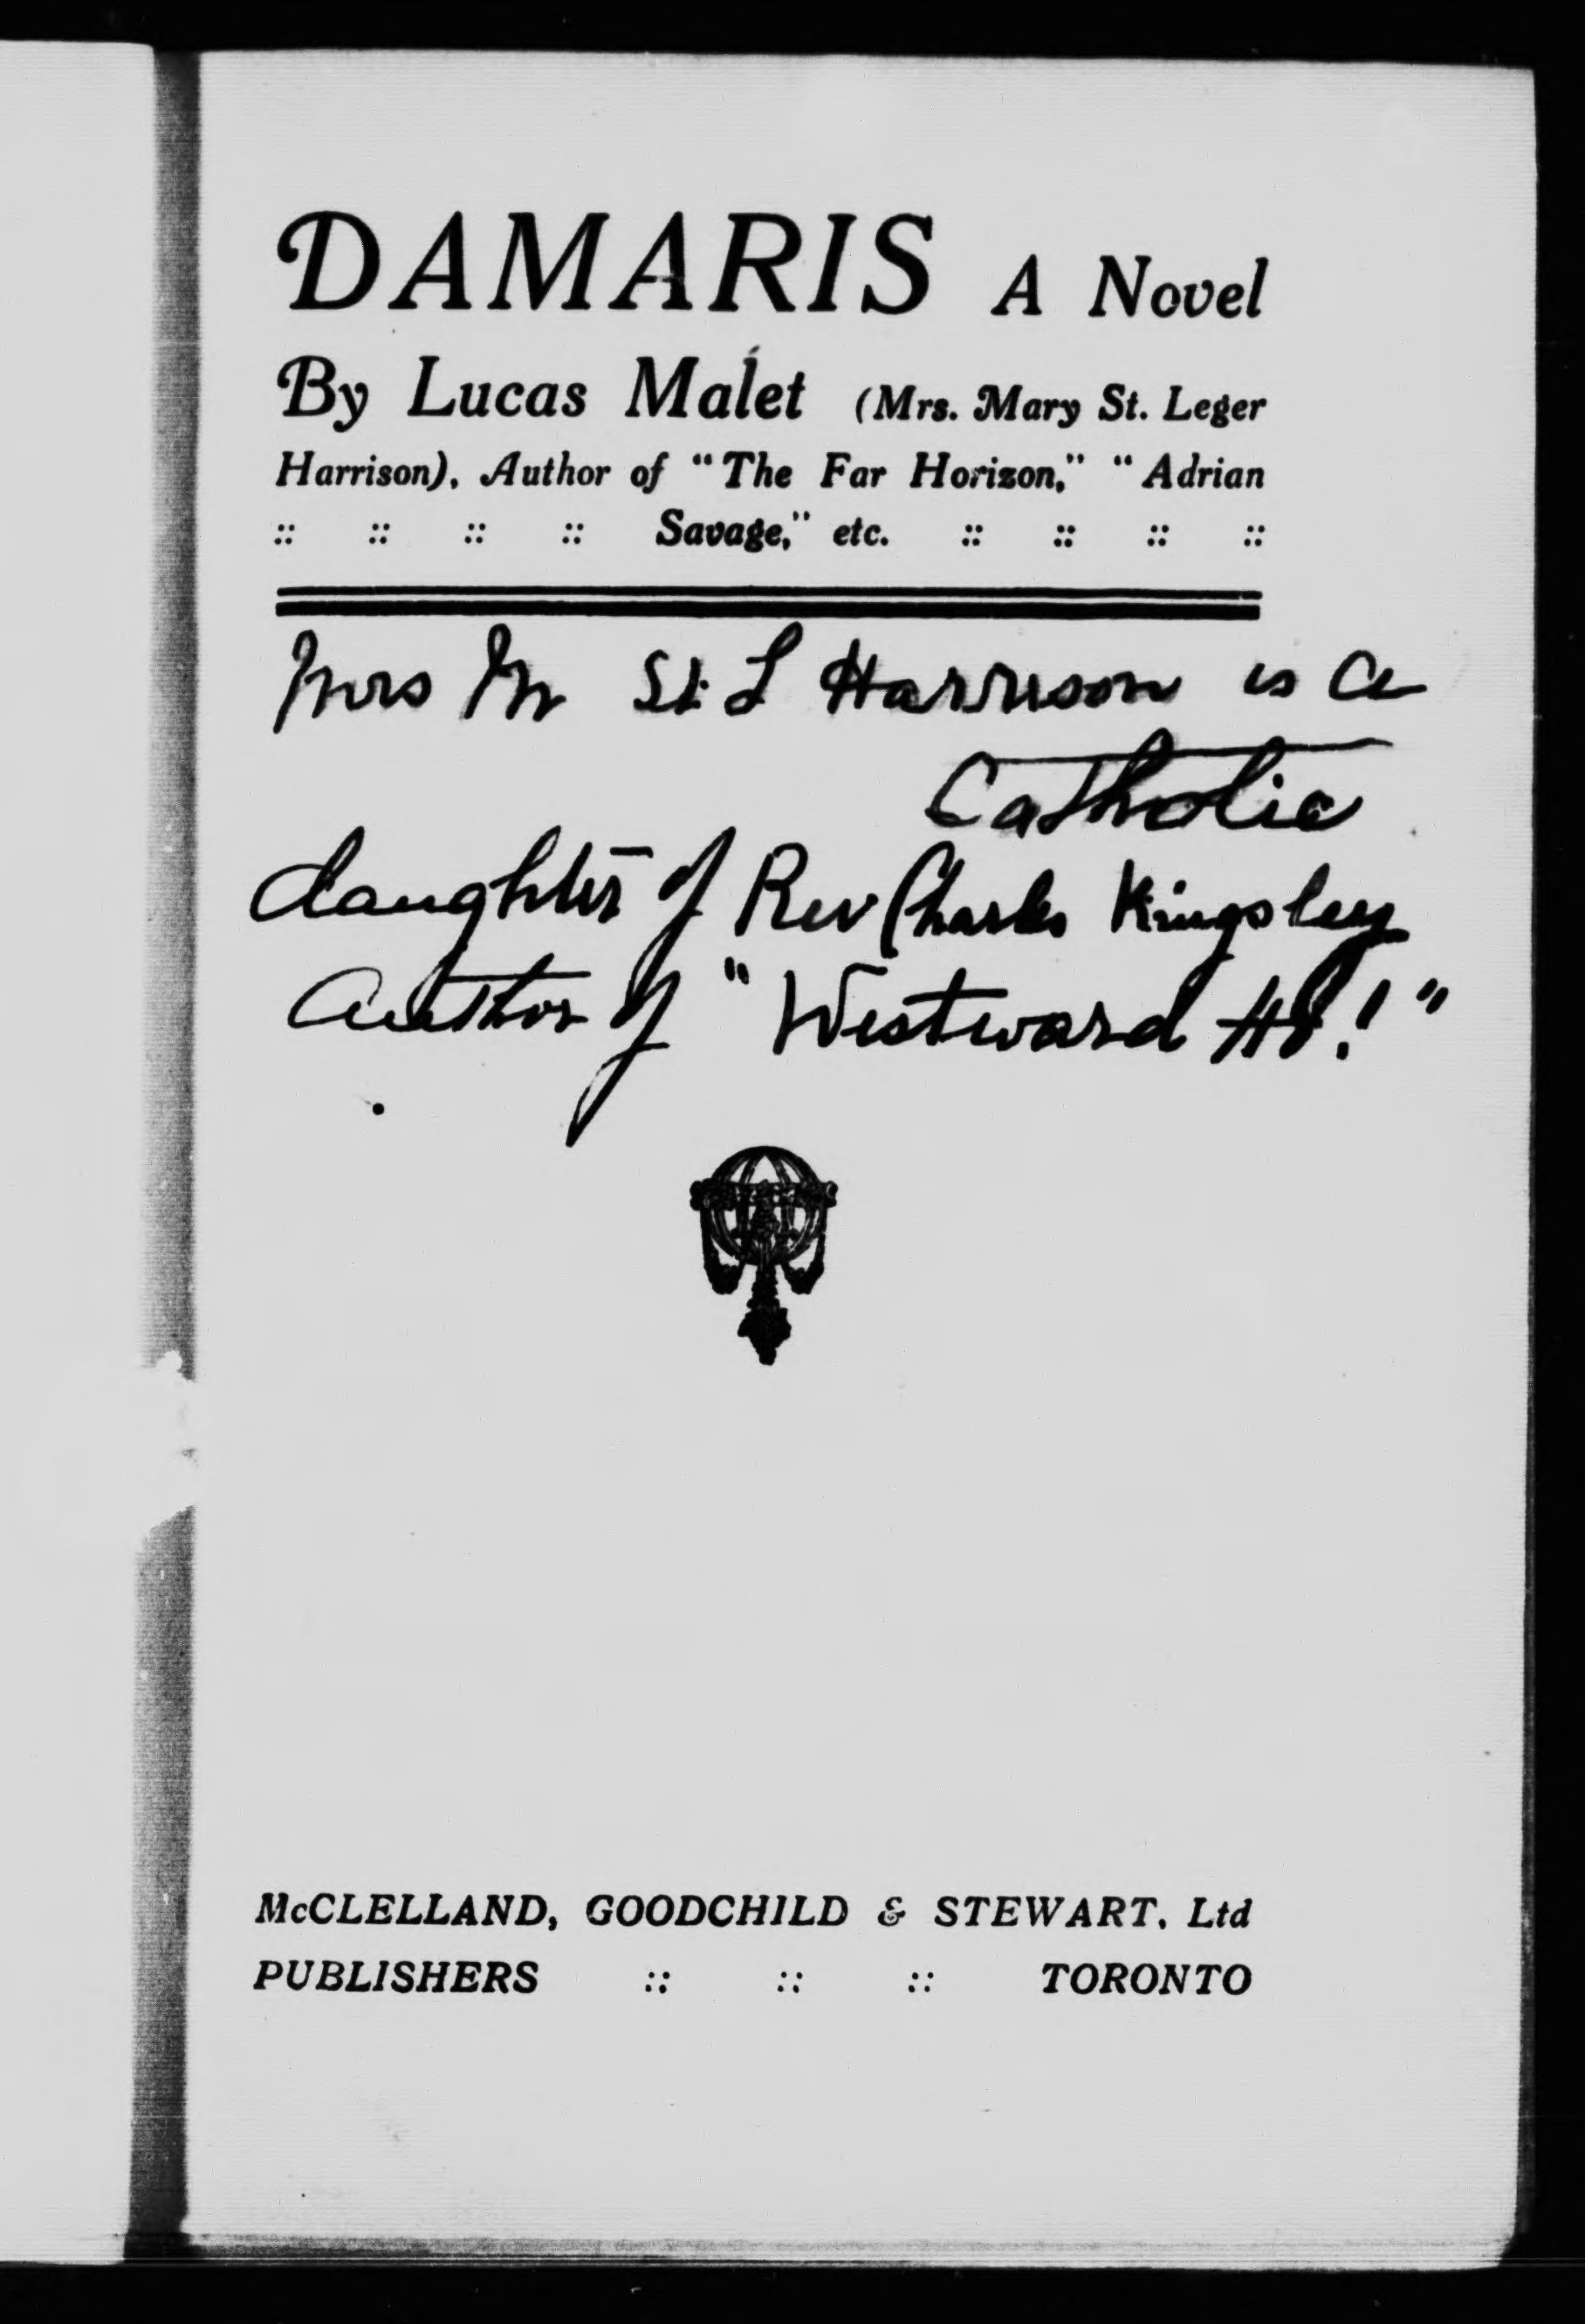 DAMARIS A Novel
By Lucas Malet (Mrs. Mary St. Leger
Harrison), Author of "The Far Horizon," "Adrian
:: :: :: :: Savage," etc. :: :: :: ::
Mrs M St. L Harrison is a
Catholic
daughter of Rev Charles Kingsley
Author of "Westward Ho!"
McCLELLAND, GOODCHILD & STEWART, Ltd
PUBLISHERS :: :: :: TORONTO